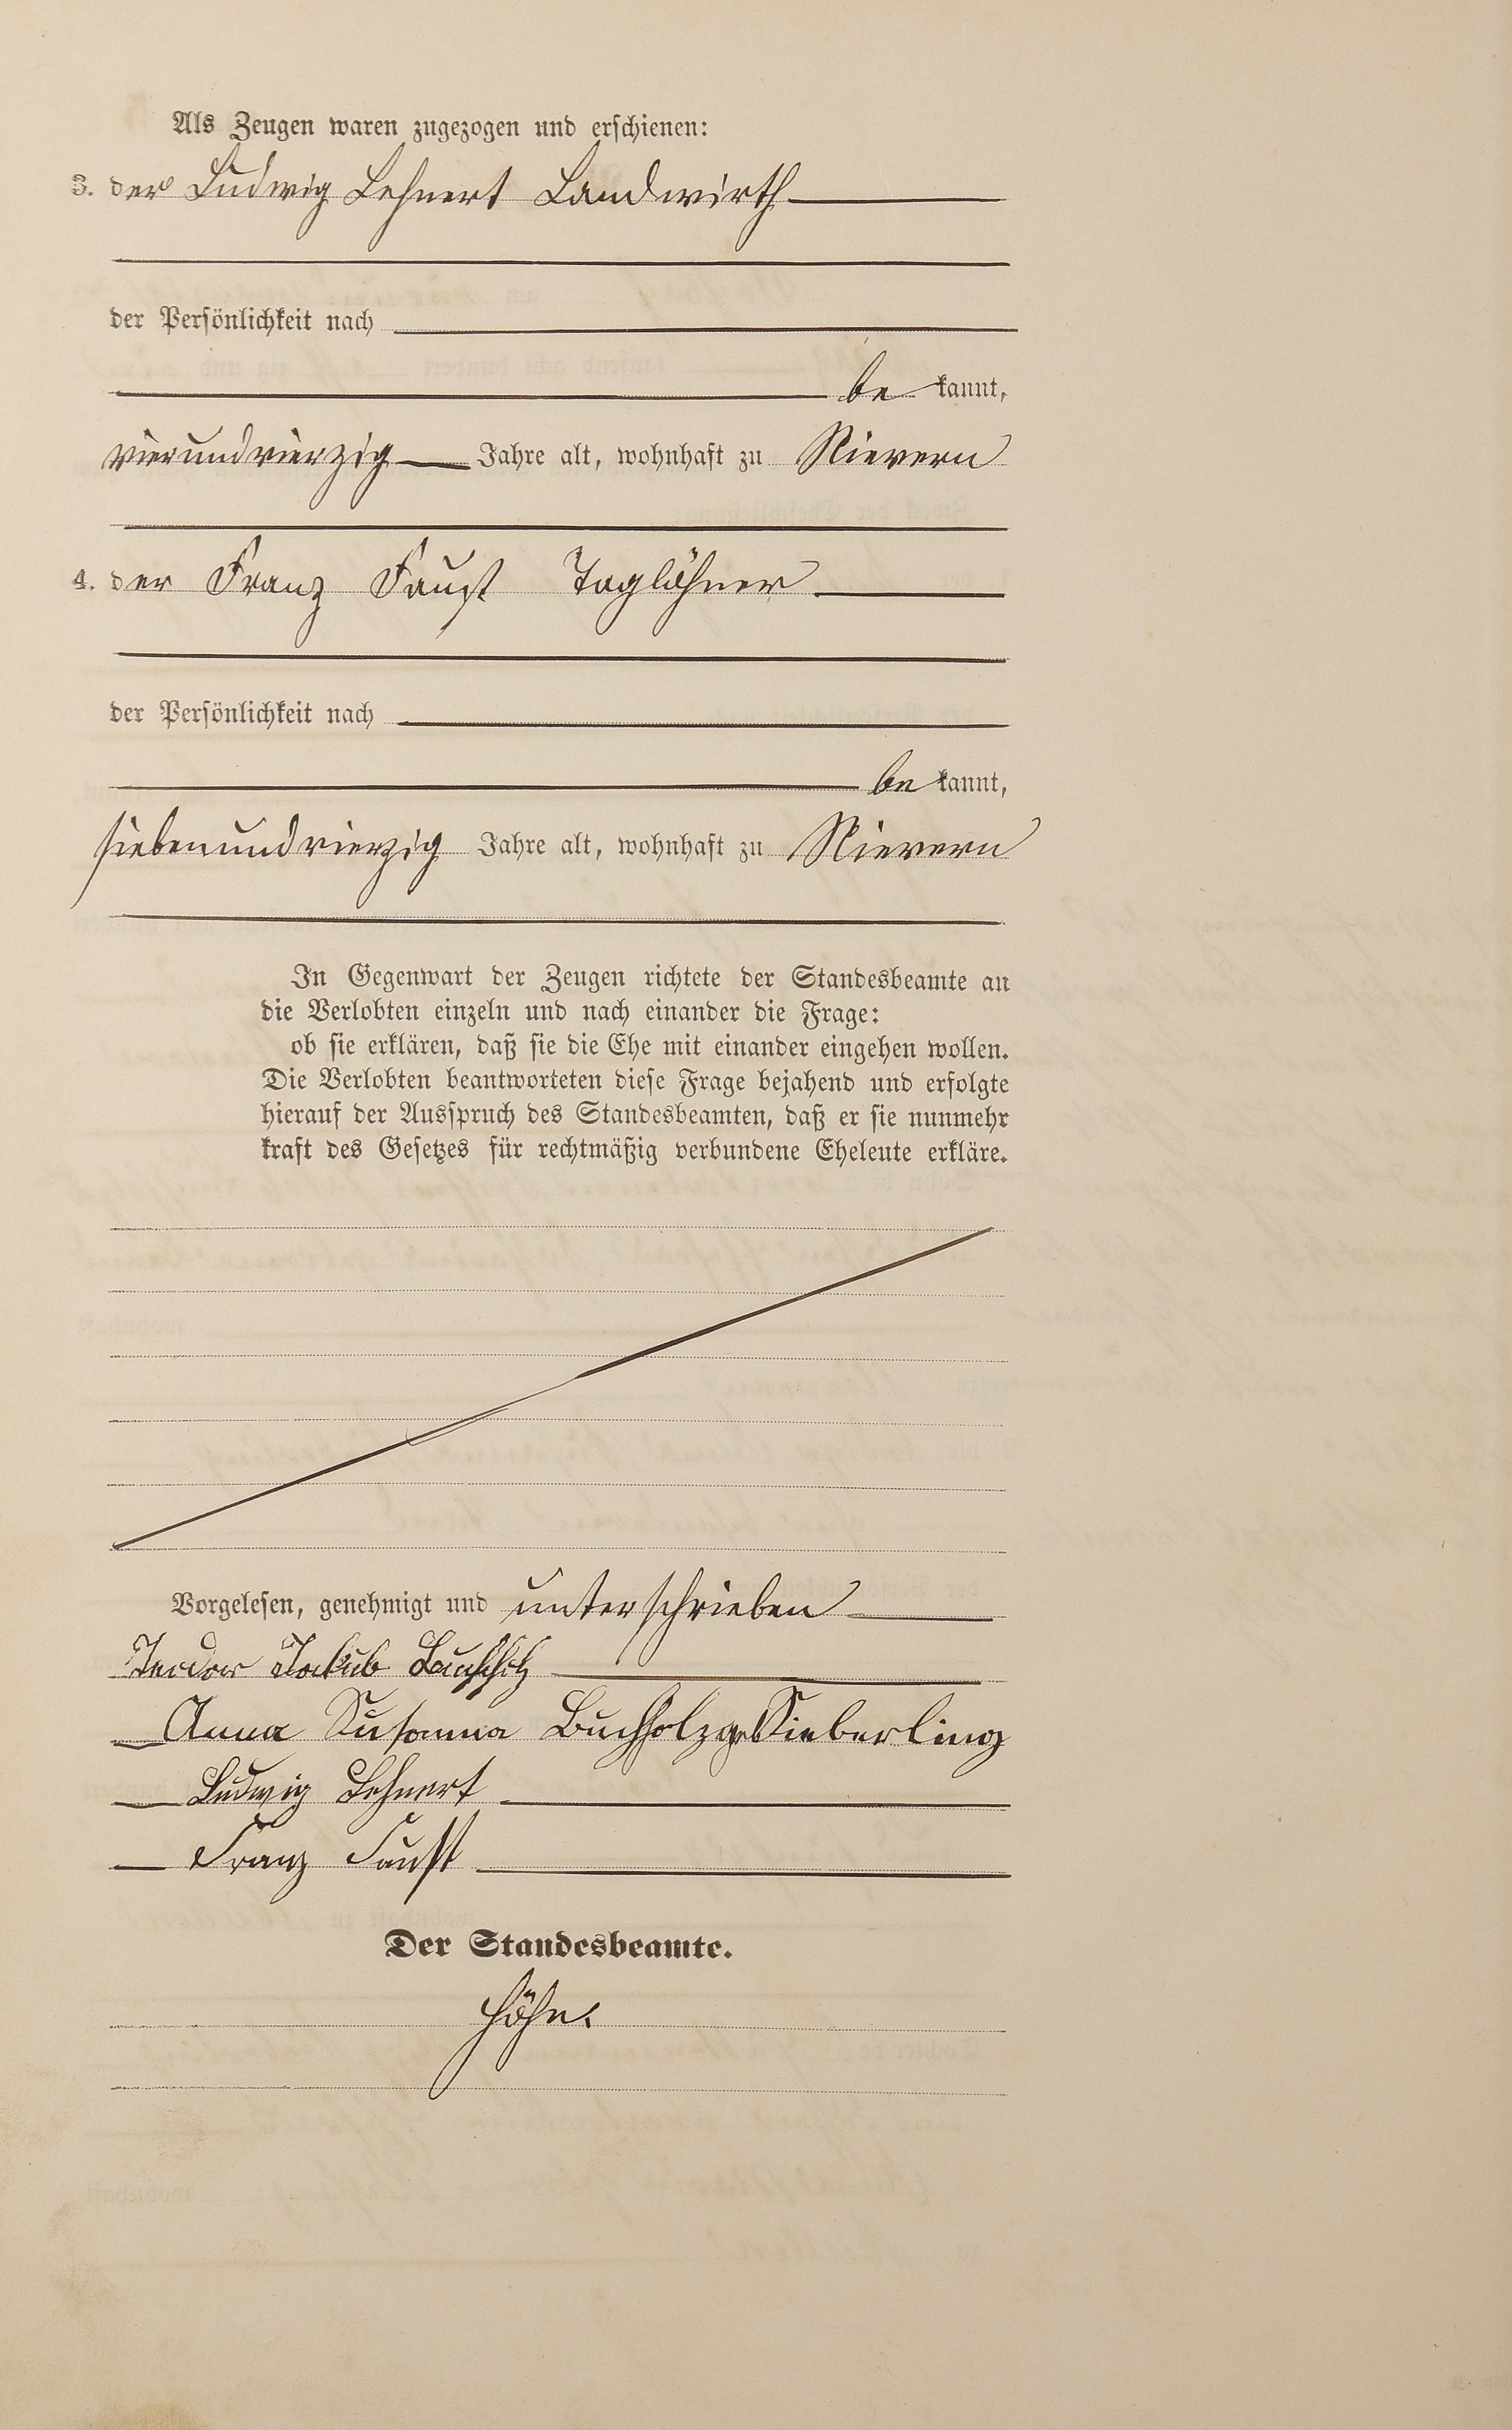 Als Zeugen waren zugezogen und erschienen:
3. der Ludwig Lehnert Landwirth
der Persönlichkeit nach
be kannt,
vierundvierzig Jahre alt, wohnhaft zu Nievern
4. der Franz Faust Taglöhner
der Persönlichkeit nach
be kannt,
siebenundvierzig Jahre alt, wohnhaft zu Nievern
In Gegenwart der Zeugen richtete der Standesbeamte an
die Verlobten einzeln und nach einander die Frage:
ob sie erklären, daß sie die Ehe mit einander eingehen wollen.
Die Verlobten beantworteten diese Frage bejahend und erfolgte
hierauf der Ausspruch des Standesbeamten, daß er sie nunmehr
kraft des Gesetzes für rechtmäßig verbundene Eheleute erkläre.
Vorgelesen, genehmigt und unterschrieben
Jakob
Anna Susanna Buchholz geb Sieberling
Ludwig Lehnert
Franz Faust
Der Standesbeamte.
Höhn.